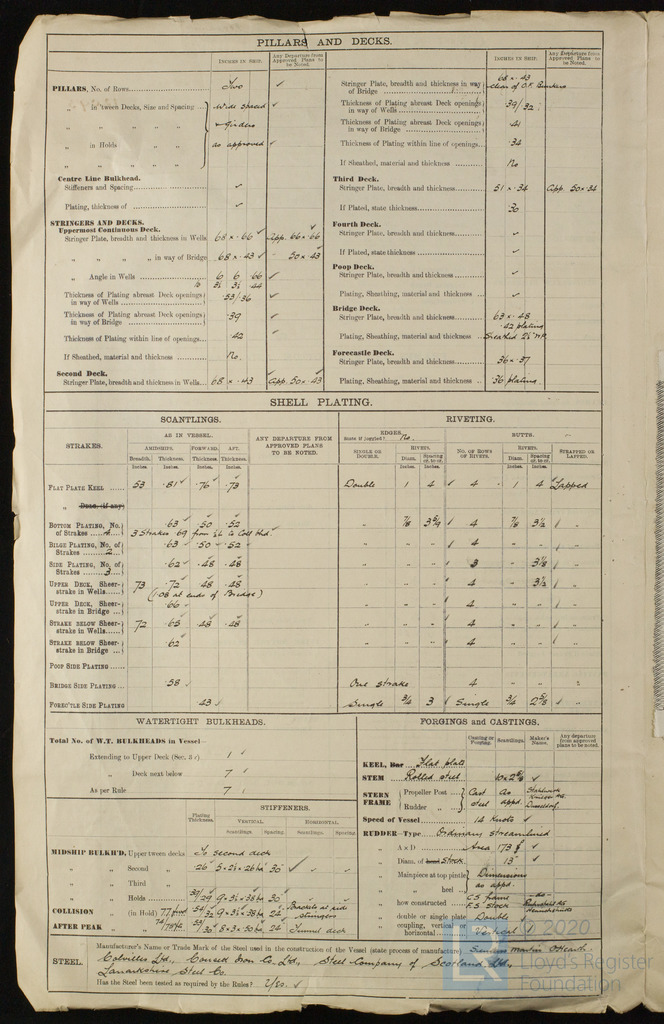 PILLARS AND DECKS.
INCHES IN SHIP. Any Departure from Approved Plans to be Noted.
PILLARS, No. of Rows Two ✓
„ in 'tween Decks, Size and Spacing Wide spaced ✓
„ „ „ „ girders
„ in Holds „ „ as approved ✓
„ „ „ „
Centre Line Bulkhead.
Stiffeners and Spacing ✓
Plating, thickness of ✓
STRINGERS AND DECKS.
Uppermost Continuous Deck.
Stringer Plate, breadth and thickness in Wells 68 × .66 ✓ App. 66 × .66
„ „ „ „ in way of Bridge 68 × .43 ✓ 50 × 43
„ Angle in Wells 6 6 .66 ✓
3½ 3½ .44
Thickness of Plating abreast Deck openings in way of Wells .53/36 ✓
Thickness of Plating abreast Deck openings in way of Bridge .39
Thickness of Plating within line of openings .42
If Sheathed, material and thickness No.
Second Deck.
Stringer Plate, breadth and thickness in Wells 68 × .43 App. 50 × 43
INCHES IN SHIP. Any Departure from Approved Plans to be Noted.
Stringer Plate, breadth and thickness in way of Bridge 68 × .43
clear of O.F. Bunkers
Thickness of Plating abreast Deck openings in way of Wells .39/32
Thickness of Plating abreast Deck openings in way of Bridge .41
Thickness of Plating within line of openings .34
If Sheathed, material and thickness No
Third Deck.
Stringer Plate, breadth and thickness 51 × .34 App. 50 × 34
If Plated, state thickness .30
Fourth Deck.
Stringer Plate, breadth and thickness ✓
If Plated, state thickness ✓
Poop Deck.
Stringer Plate, breadth and thickness ✓
Plating, Sheathing, material and thickness ✓
Bridge Deck.
Stringer Plate, breadth and thickness 63 × .48
.42 plating
Plating, Sheathing, material and thickness Sheathed 2½"
Forecastle Deck.
Stringer Plate, breadth and thickness 36 × .37
Plating, Sheathing, material and thickness .36 plating.
SHELL PLATING.
SCANTLINGS. RIVETING.
STRAKES. AS IN VESSEL. ANY DEPARTURE FROM APPROVED PLANS TO BE NOTED.
AMIDSHIPS. FORWARD. AFT.
Breadth. Thickness. Thickness. Thickness.
Inches. Inches. Inches. Inches.
EDGES. State if joggled? No. BUTTS.
SINGLE OR DOUBLE. RIVETS. Diam. Spacing cr. to cr. No. OF ROWS OF RIVETS. RIVETS. Diam. Spacing cr. to cr. STRAPPED OR LAPPED.
FLAT PLATE KEEL 53 .81 .76 .73 Double 1 4 4 1 4 Lapped
„ DBLG. (if any)
BOTTOM PLATING, No. of Strakes 4 .63 .50 .52 „ 7/8 4 7/8 3½ „
3 Strakes .69 from
BILGE PLATING, No. of Strakes 2 .63 .50 .52 „ 4
SIDE PLATING, No. of Strakes 3 .62 .48 .48 „ 3 3⅛ „
UPPER DECK, Sheerstrake in Wells 73 .72 .48 .48 „ 4 3½ „
(1.08 at ends of Bridge)
UPPER DECK, Sheerstrake in Bridge .66 „ 4 „
STRAKE BELOW Sheerstrake in Wells 72 .63 .48 .48 „ 4 „
STRAKE BELOW Sheerstrake in Bridge .62 „ 4 „
POOP SIDE PLATING
BRIDGE SIDE PLATING .58 One strake 4 „
FOREC'TLE SIDE PLATING .43 Single 3/4 3 Single 3/4 2⅝ „
WATERTIGHT BULKHEADS.
Total No. of W.T. BULKHEADS in Vessel—
Extending to Upper Deck 1 ✓
„ Deck next below 7 ✓
As per Rule 7 ✓
Plating Thickness. STIFFENERS.
VERTICAL. HORIZONTAL.
Scantlings. Spacing. Scantlings. Spacing.
MIDSHIP BULKH'D, Upper 'tween decks To second deck
„ „ Second „ .26 5 × 3½ × .28 30 ✓
„ „ Third „
„ „ Holds 39/29 9 × 3½ × .38 30
COLLISION „ (in Hold) 9 × 3½ × .38 24 Brackets at side stringers
AFTER PEAK „ „ 24 Tunnel door
FORGINGS and CASTINGS.
Casting or Forging. Scantlings. Maker's Name. Any departure from approved plans to be noted.
KEEL, Bar Flat plate
STEM Rolled steel ✓
STERN FRAME Propeller Post Cast As
Rudder „ steel appd. Dusseldorf
Speed of Vessel 14 knots ✓
RUDDER—Type Ordinary streamlined
„ A x D Area 173 ✓
„ Diam. of head Stock 13" ✓
„ Mainpiece at top pintle Dimensions
„ „ heel as appd.
„ how constructed C.S. frame
F.S. Stock
„ double or single plate Double ✓
„ coupling, vertical or horizontal Vertical
STEEL. Manufacturer's Name or Trade Mark of the Steel used in the construction of the Vessel (state process of manufacture) Siemens Martin
Colvilles Ltd., Consett Iron Co. Ltd., Steel Company of Scotland Ltd.,
Lanarkshire Steel Co.
Has the Steel been tested as required by the Rules? Yes. ✓
© 2020
Lloyd's Register
Foundation